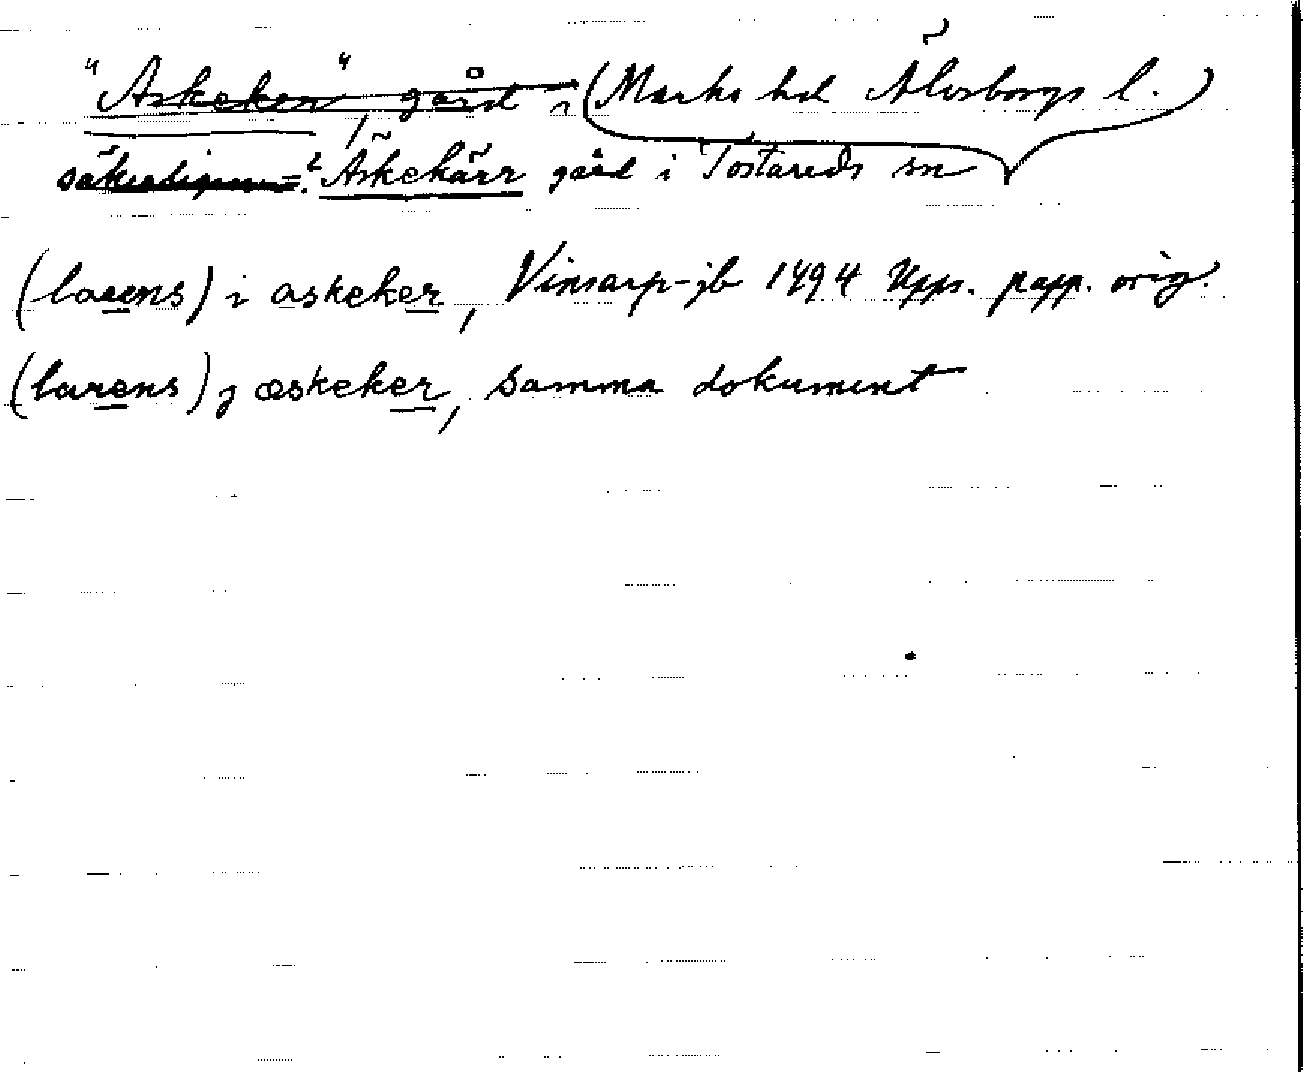 "Askeken" gård i (Marks hd Älvsborgs l.)
säkerligen = ? Äskekärr gård i Tostareds sn
(larens) i askeker, Vinsarp-jb 1494 Upps. papp. orig.
(larens) j æskeker, samma dokument